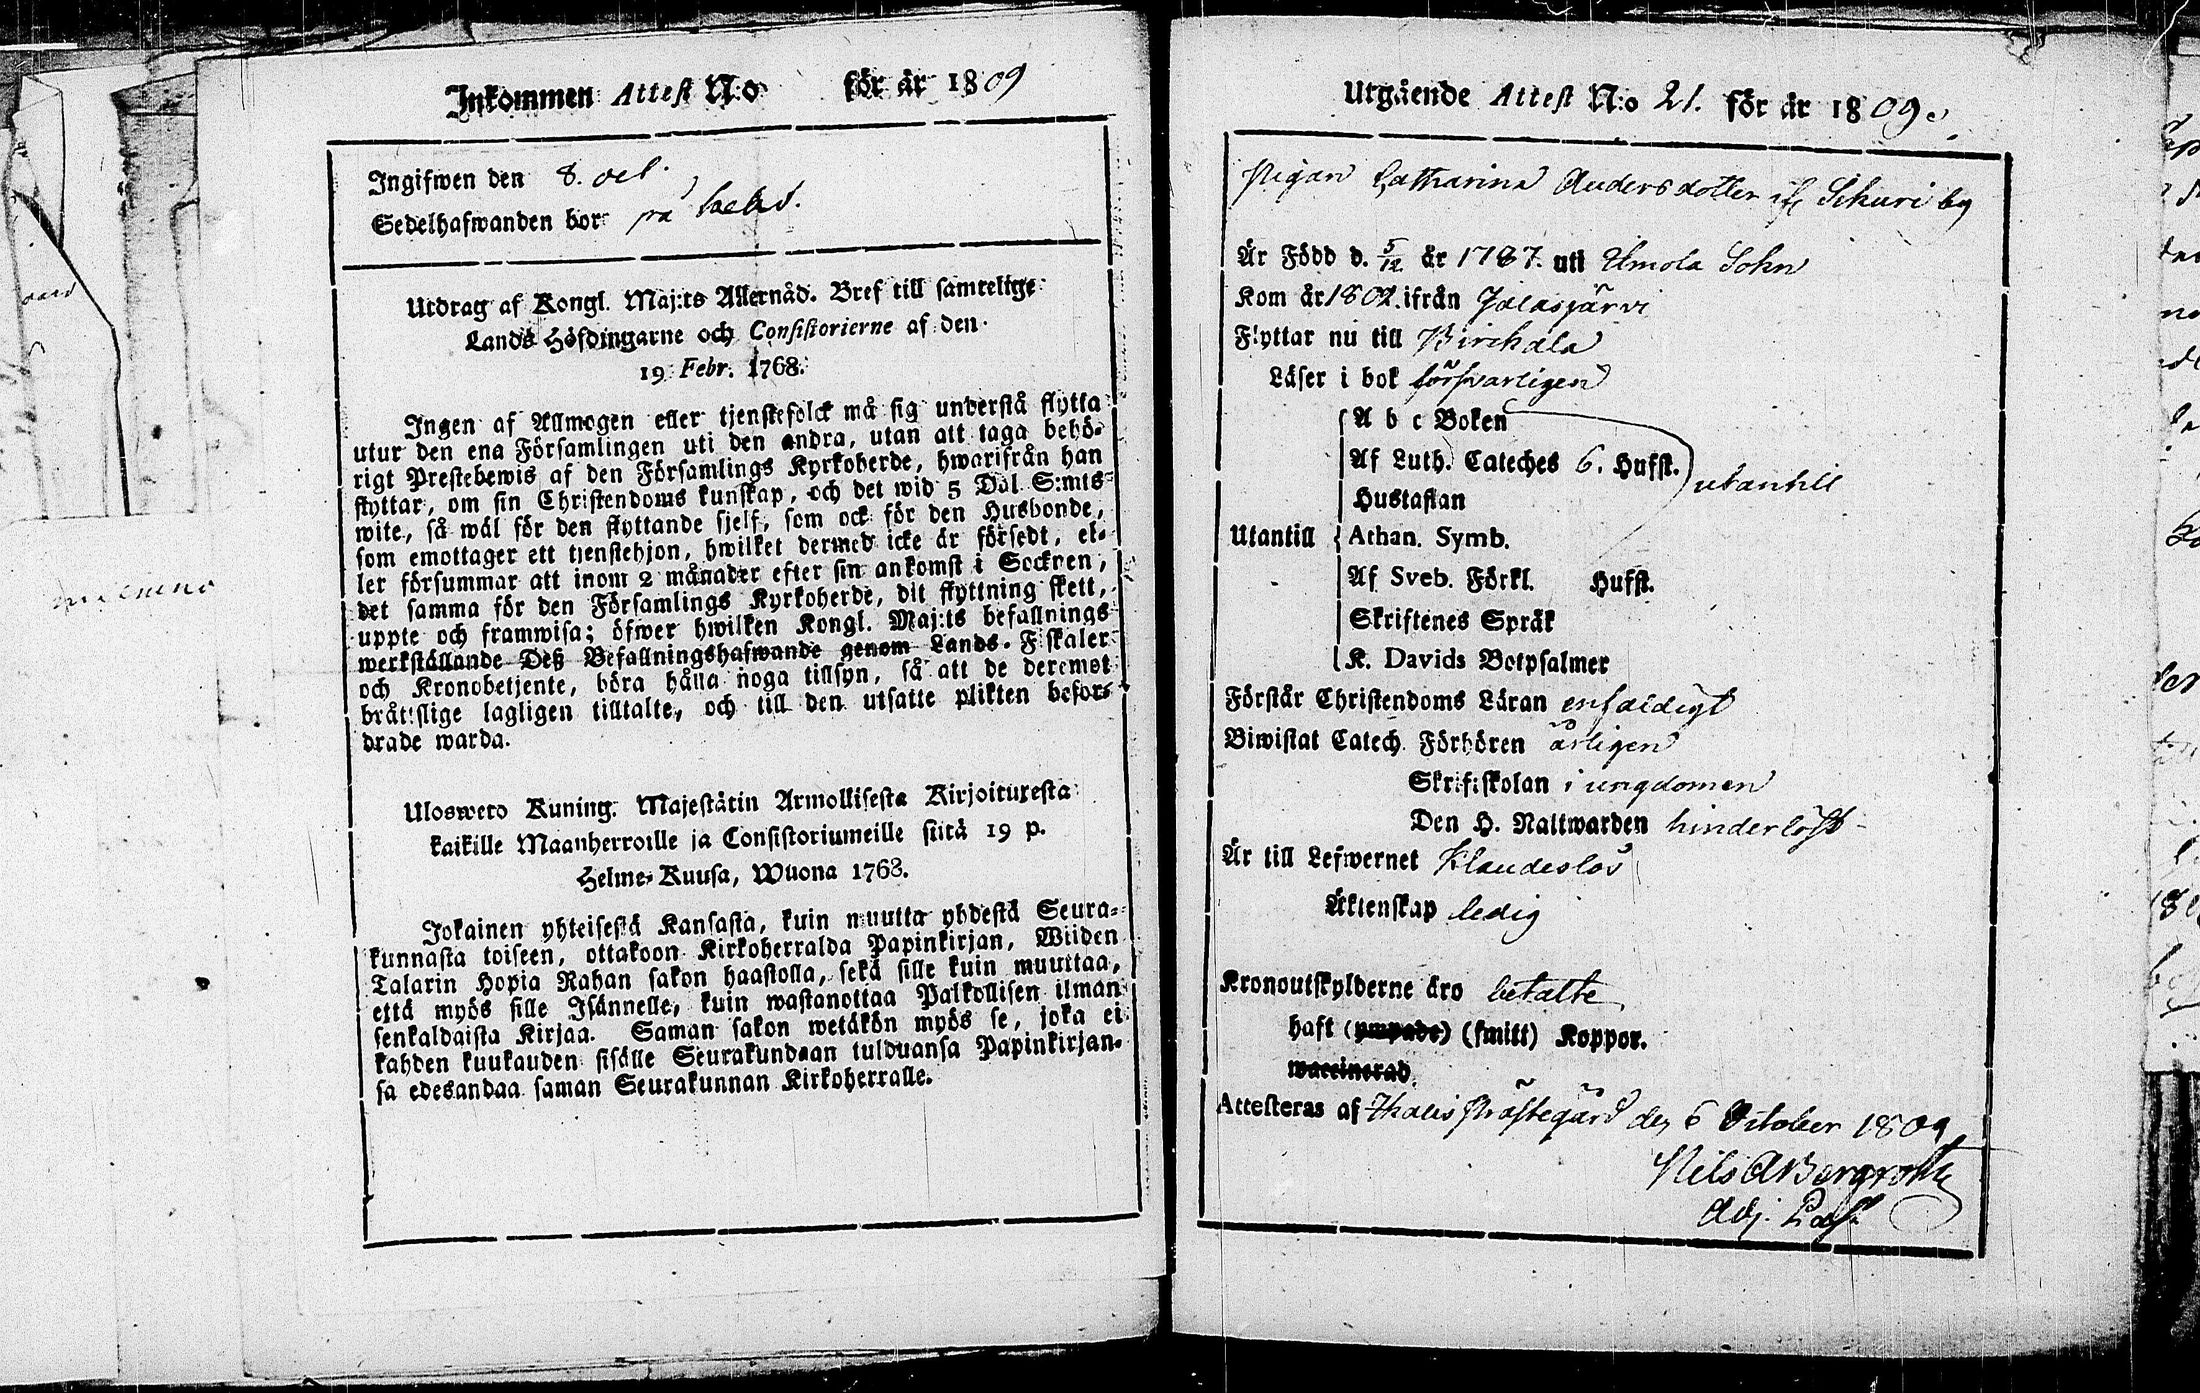 Inkommen Attest N:o för år 1809
Ingifwen den 8. oct.
Sedelhafwanden bor på
Utdrag af Kongl. Maj:ts Allernåd. Bref till samtelige
Lands Höfdingarne och Consistorierne af den
19 Febr. 1768.
Ingen af Allmogen eller tjenstefolck må sig understå flytta
utur den ena Församlingen uti den andra, utan att taga behö-
rigt Prestebewis af den Församlings Kyrkoherde, hwarifrån han
flyttar, om sin Christendoms kunskap, och det wid 5 Dal. S:mts
wite, så wäl för den flyttande sjelf, som ock för den Husbonde,
som emottager ett tjenstehjon, hwilket dermed icke är försedt, el-
ler försummar att inom 2 månader efter sin ankomst i Socknen,
det samma för den Församlings Kyrkoherde, dit flyttning skett,
uppte och framwisa; öfwer hwilken Kongl. Maj:ts befallnings
werkställande Deß Befallningshafwande genom Lands-Fiskaler
och Kronobetjente, böra hålla noga tillsyn, så att de deremot
bråttslige lagligen tilltalte, och till den utsatte plikten befor-
drade warda.
Uloswето Kuning. Majestätin Armollisesta Kirjoituxesta
kaikille Maanherroille ja Consistoriumeille siitä 19 p.
Helme-Kuusa, Wuona 1768.
Jokainen yhteisestä Kansasta, kuin muutta yhdestä Seura-
kunnasta toiseen, ottakoon Kirkoherralda Papinkirjan, Wiiden
Talarin Hopia Rahan sakon haastolla, sekä sille kuin muuttaa,
että myös sille Isännelle, kuin wastanottaa Palkollisen ilman
senkaldaista Kirjaa. Saman sakon wetäkön myös se, joka ei
kahden kuukauden sisälle Seurakundaan tulduansa Papinkirjan-
sa edesandaa saman Seurakunnan Kirkoherralle.
Utgående Attest N:o 21. för år 1809.
Pigan Catharina Andersdotter if Schuri by
Är Född d. 5/12 år 1787. uti Ilmola Sokn
Kom år 1802. ifrån Jalasjärvi
Flyttar nu till Birchala
Läser i bok försvarligen
A b c Boken
Af Luth. Cateches 6. Hufst.
utantill
Hustaflan
Utantill Athan. Symb.
Af Sveb. Förkl. Hufst.
Skriftenes Språk
K. Davids Botpsalmer
Förstår Christendoms Läran enfaldigt
Biwistat Catech. Förhören årligen
Skriftskolan i ungdomen
Den H. Nattwarden hinderlöst
Är till Lefwernet Klanderlös
Äktenskap ledig
Kronoutskylderne äro betalte
haft (ympade) (smitt) Koppor.
waccinerad
Attesteras af Thalis Prästegård den 6 October 1809
Nils A Bergroth
Adj. Past.